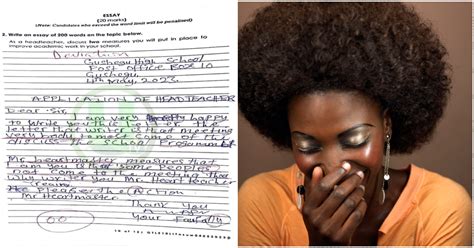 ESSAY
[20 marks]
(Note: Candidates who exceed the word limit will be penalised)
2. Write an essay of 200 words on the topic below.
As a headteacher, discuss two measures you will put in place to
improve academic work in your school.
Deviation
Gushegu High School
Post Office Box 10
Gushegu,
4th May, 2023
APPLICATION OF HEADTEACHER
Dear Sir,
I am very happy
to write you this letter or the
letter that writer is that meeting
very body to most come of the
discuss the school
Mr heartmaster measures that
and is that some peoples
not come to the meeting that
why writer you Mr HeartTeacher
Please the Action
Mr. Heartmaster
Thank you
Your Faithfully
00